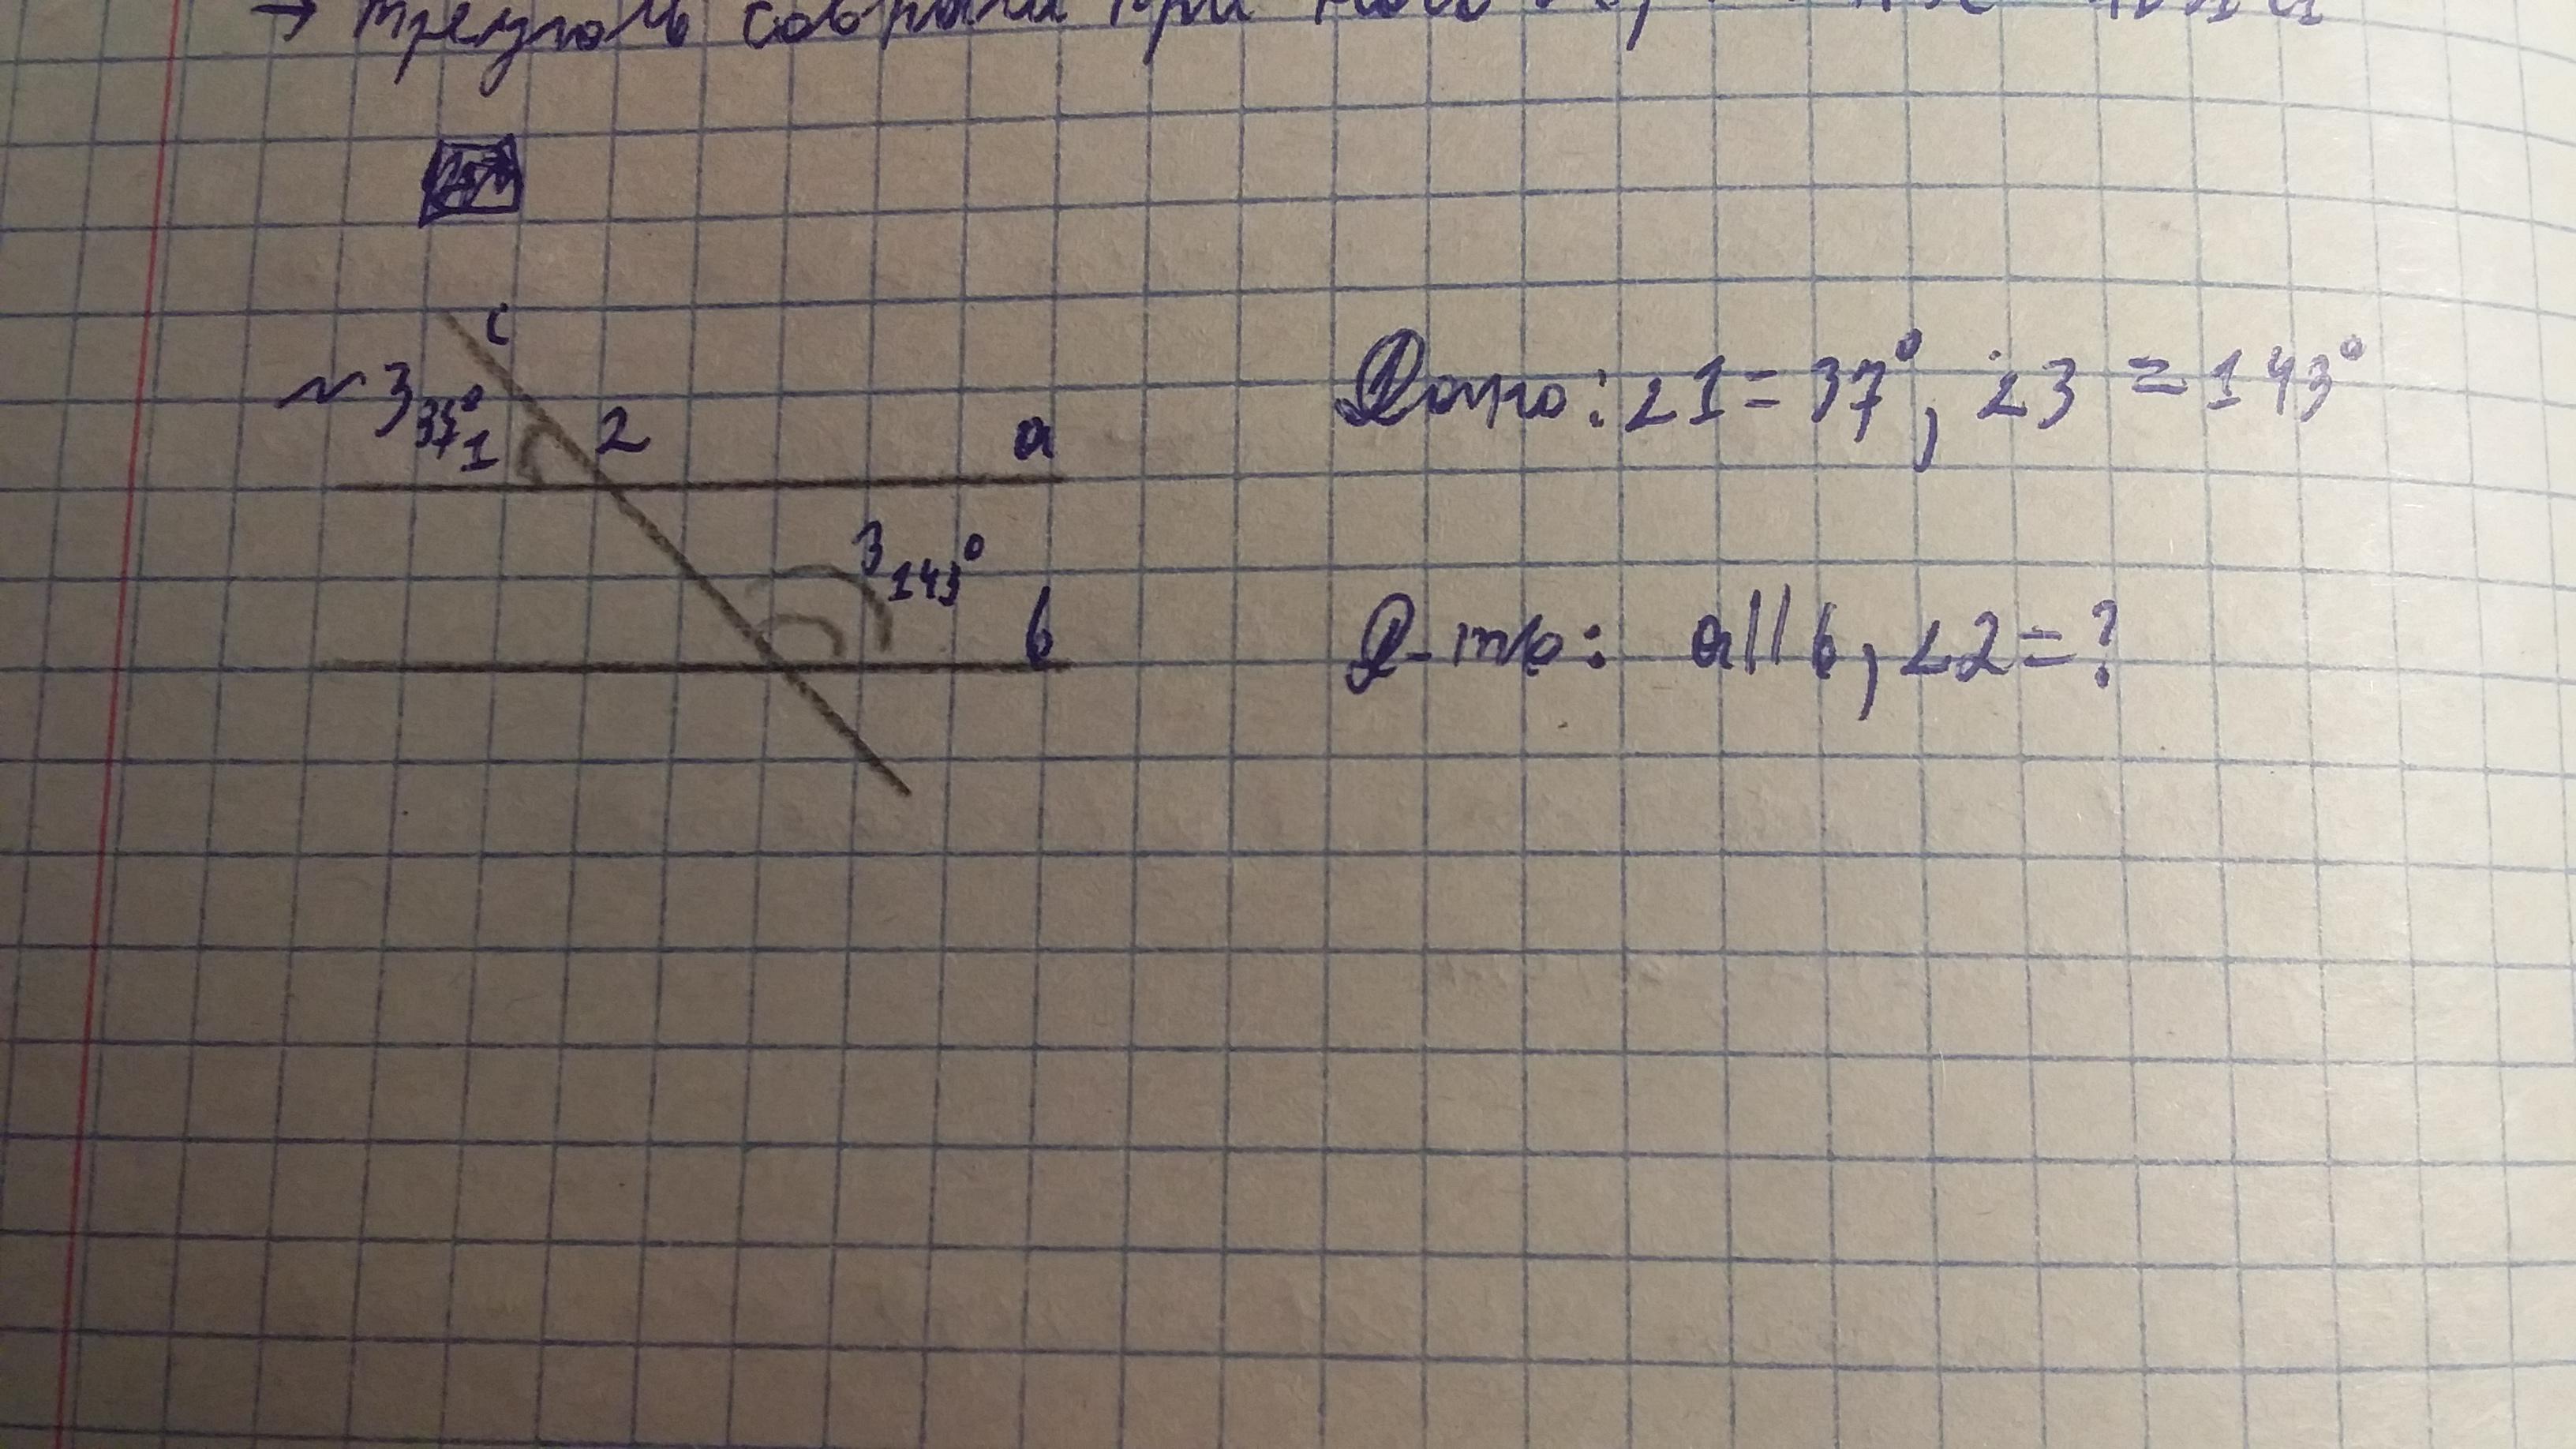 → треуголь
c
~ 3
37°
1
2
a
3
143°
b
Дано: ∠1 = 37°, ∠3 = 143°
Д-ть: a || b, ∠2 = ?